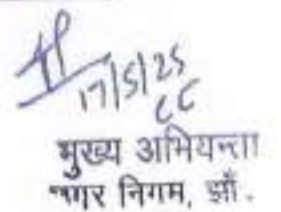 17/5/25
CC
मुख्य अभियन्ता
नगर निगम, झाँ.